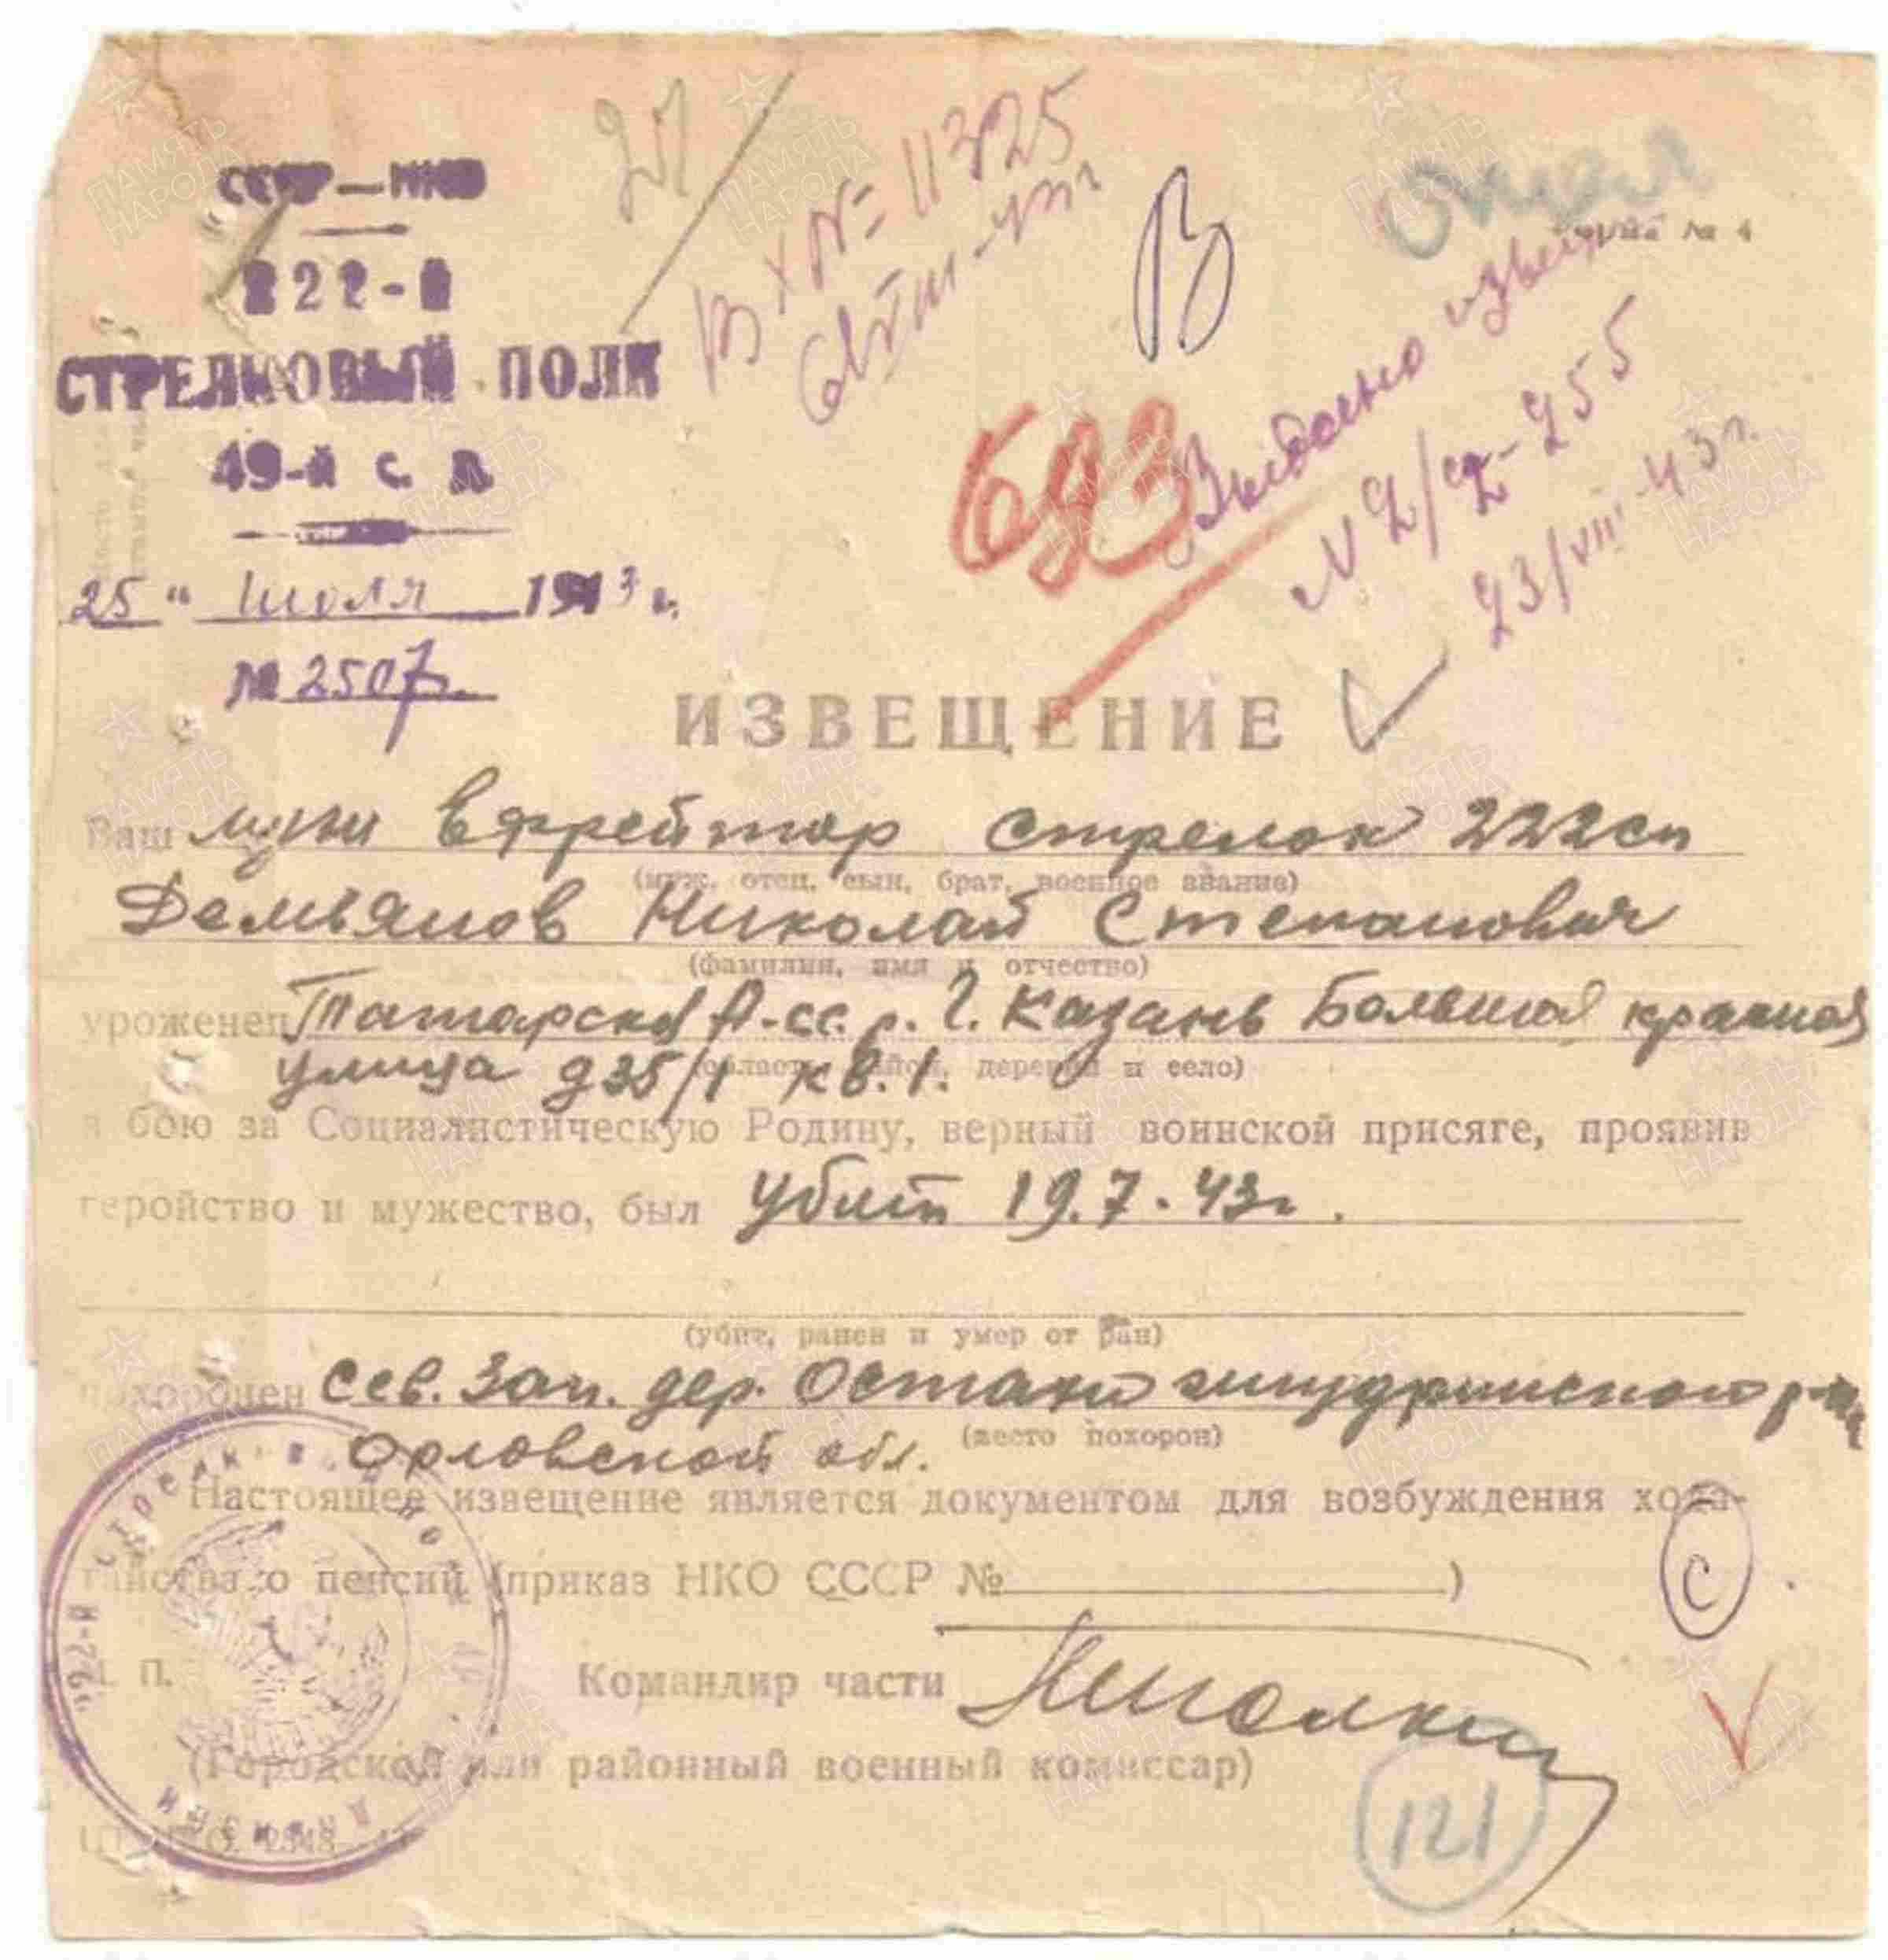 СССР—НКО
222-й
СТРЕЛКОВЫЙ ПОЛК
49-й С. Д.
25 " июля 1943 г.
№ 2507
Вх № 11325
В
693
Выдано извещ
N 2/2-255
23/VIII-43 г.
№ 4
ИЗВЕЩЕНИЕ
Ваш муж Ефрейтор стрелок 222 сп
(муж, отец, сын, брат, военное звание)
Демьянов Николай Степанович
(фамилия, имя и отчество)
уроженец Татарской А-сс.р. г. Казань Большая красная
улица д 35/1 кв. 1.
(область, район, деревня и село)
в бою за Социалистическую Родину, верный воинской присяге, проявив
геройство и мужество, был убит 19.7.43г.
(убит, ранен и умер от ран)
похоронен Сев. Зап. дер. Орловской обл.
(место похорон)
Настоящее извещение является документом для возбуждения хода-
тайства о пенсии (приказ НКО СССР № )
С
М. П.
Командир части
(Городской или районный военный комиссар)
121
ПАМЯТЬ НАРОДА